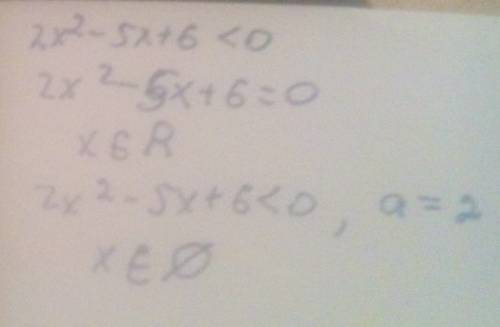 2x² - 5x + 6 < 0
2x² - 5x + 6 = 0
x ∈ R
2x² - 5x + 6 < 0, a = 2
x ∈ Ø